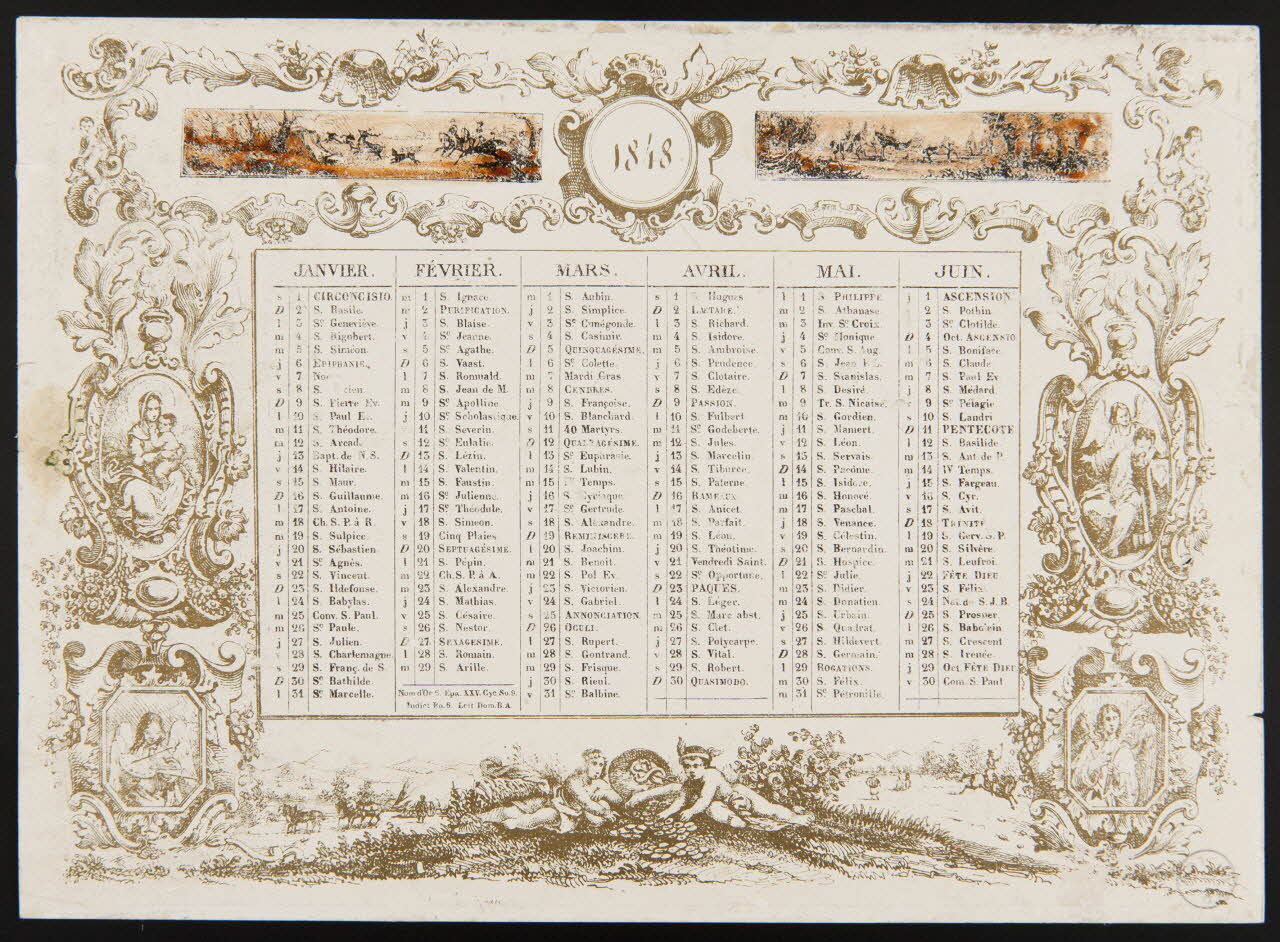 1848
JANVIER.
s 1 CIRCONCISIO
D 2 S. Basile.
l 3 Se Geneviève.
m 4 S. Rigobert.
m 5 S. Siméon.
j 6 EPIPHANIE.
v 7
s 8
D 9 S. Pierre Ev.
l 10 S. Paul
m 11 S. Théodore.
m 12 S. Arcad.
j 13 Bapt. de N.S.
v 14 S. Hilaire.
s 15 S. Maur.
D 16 S. Guillaume.
l 17 S. Antoine.
m 18 Ch. S. P. à R.
m 19 S. Sulpice.
j 20 S. Sébastien.
v 21 Se Agnès.
s 22 S. Vincent.
D 23 S. Ildefonse.
l 24 S. Babylas.
m 25 Conv. S. Paul.
m 26 Se Paule.
j 27 S. Julien.
28 S. Charlemagne
s 29 S. Franç. de S.
D 30 Se Bathilde.
l 31 Se Marcelle.
FÉVRIER.
m 1 S. Ignace.
m 2 PURIFICATION.
j 3 S. Blaise.
v 4 Se Jeanne.
s 5 Se Agathe.
D 6 S. Vaast.
l 7 S. Romuald.
m 8 S. Jean de M.
m 9 Se Apolline.
j 10 Se Scholastique.
11 S. Severin.
s 12 Se Eulalie.
D 13 S. Lézin.
l 14 S. Valentin.
m 15 S. Faustin.
m 16 Se Julienne.
j 17 Se Théodule.
v 18 S. Siméon.
s 19 Cinq Plaies
D 20 SEPTUAGÉSIME.
l 21 S. Pépin.
m 22 Ch. S. P. à A.
m 23 S. Alexandre.
j 24 S. Mathias.
v 25 S. Césaire.
s 26 S. Nestor.
D 27 SEXAGESIME.
l 28 S. Romain.
m 29 S. Arille.
Nom d'Or 6. Epa. XXV. Cyc. So. 9.
Indict Ro. 6. Lett Dom. B.A.
MARS.
m 1 S. Aubin.
j 2 S. Simplice.
v 3 Se Cunégonde.
s 4 S. Casimir.
D 5 QUINQUAGÉSIME.
l 6 Se Colette.
m 7 Mardi Gras
m 8 CENDRES.
j 9 S. Françoise.
v 10 S. Blanchard.
s 11 40 Martyrs.
D 12 QUADRAGÉSIME.
l 13 Se Euphrasie.
m 14 S. Lubin.
m 15 Temps.
j 16 S. Cyriaque
v 17 Se Gertrude.
s 18 S. Alexandre.
D 19 REMINISCERE.
l 20 S. Joachim.
m 21 S. Benoit.
m 22 S. Pol Ev.
j 23 S. Victorien.
v 24 S. Gabriel.
s 25 ANNONCIATION.
D 26 OCULI.
l 27 S. Rupert.
m 28 S. Gontrand.
m 29 S. Frisque.
j 30 S. Rieul.
v 31 Se Balbine.
AVRIL.
s 1 S. Hugues
D 2 LAETARE.
l 3 S. Richard.
m 4 S. Isidore.
m 5 S. Ambroise.
j 6 S. Prudence.
v 7 S. Clotaire.
s 8 S. Edèze.
D 9 PASSION.
l 10 S. Fulbert
m 11 Se Godeberte.
m 12 S. Jules.
j 13 S. Marcelin.
v 14 S. Tiburce.
s 15 S. Paterne.
D 16 RAMEAUX.
l 17 S. Anicet.
m 18 S. Parfait.
m 19 S. Léon.
j 20 S. Théotime.
v 21 Vendredi Saint.
s 22 Se Opportune.
D 23 PAQUES.
l 24 S. Léger.
m 25 S. Marc abst.
m 26 S. Clet.
j 27 S. Polycarpe.
v 28 S. Vital.
s 29 S. Robert.
D 30 QUASIMODO.
MAI.
l 1 S. PHILIPPE
m 2 S. Athanase
m 3 Inv. Se Croix.
j 4 Se Monique
v 5 Conv. S. Aug.
s 6 S. Jean
D 7 S. Stanislas.
l 8 S. Desiré.
m 9 Tr. S. Nicaise.
m 10 S. Gordien.
j 11 S. Mamert.
v 12 S. Léon.
s 13 S. Servais.
D 14 S. Pacôme.
l 15 S. Isidore.
m 16 S. Honoré.
m 17 S. Paschal.
j 18 S. Venance.
v 19 S. Célestin.
s 20 S. Bernardin.
D 21 S. Hospice.
l 22 Se Julie.
m 23 S. Didier.
m 24 S. Donatien.
j 25 S. Urbain.
v 26 S. Quadrat.
s 27 S. Hildevert.
D 28 S. Germain.
l 29 ROGATIONS.
m 30 S. Félix.
m 31 Se Pétronille.
JUIN.
j 1 ASCENSION
2 S. Pothin
3 Se Clotilde.
D 4 Oct. ASCENSIO
l 5 S. Boniface.
m 6 S. Claude
m 7 S. Paul Ev
j 8 S. Médard.
9 Se Pélagie
s 10 S. Landri
D 11 PENTECOTE
l 12 S. Basilide
m 13 S. Ant. de P.
m 14 IV Temps.
j 15 S. Fargeau.
v 16 S. Cyr.
s 17 S. Avit.
D 18 TRINITÉ
l 19 S. Gerv. S. P.
m 20 S. Silvère.
m 21 S. Leufroi.
j 22 FÊTE DIEU
v 23 S. Félix.
s 24 S. J. B.
D 25 S. Prosper.
l 26 S. Babolein
m 27 S. Crescent
m 28 S. Irenée.
j 29 Oct. FÊTE DIEU
v 30 Com. S. Paul